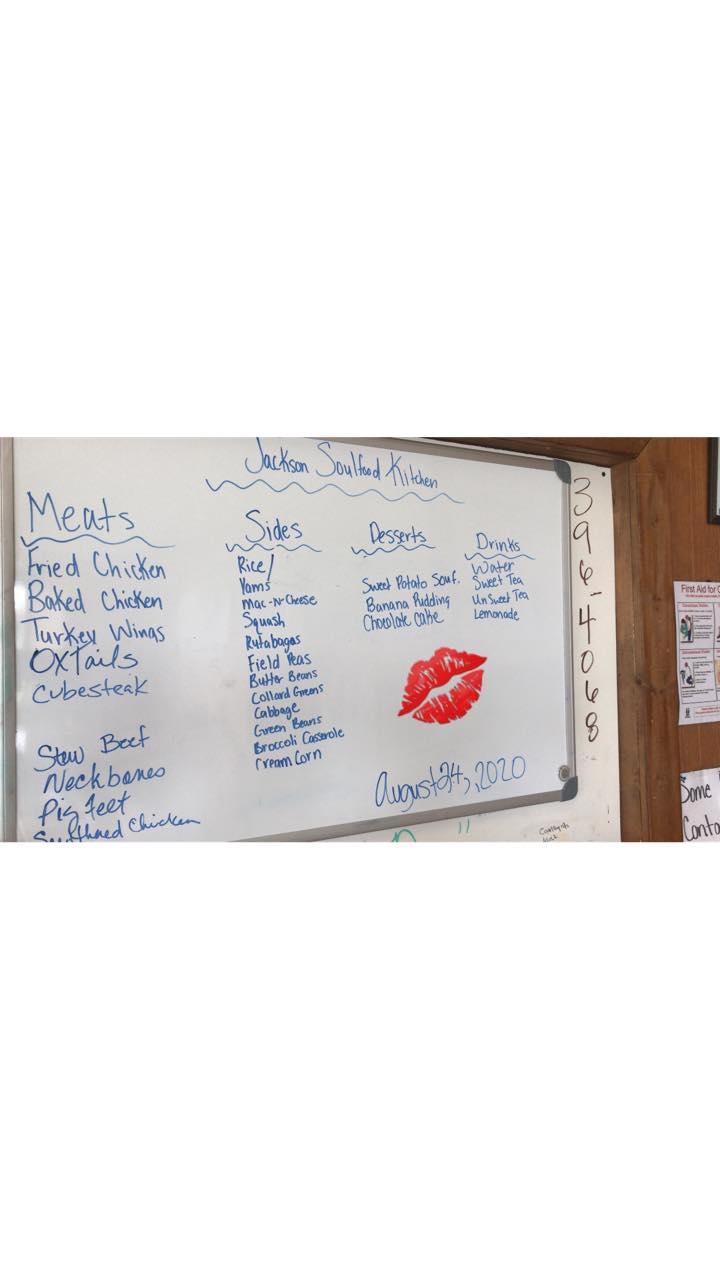 Jackson Soulfood Kitchen
Meats
Fried Chicken
Baked Chicken
Turkey Wings
OXTails
Cubesteak
Stew Beef
Neckbones
Pig feet
Chicken
Sides
Rice/
Yams
Mac-N-Cheese
Squash
Rutabagas
Field Peas
Butter Beans
Collard Greens
Cabbage
Green Beans
Broccoli Casserole
Cream Corn
Desserts
Sweet Potato Souf.
Banana Pudding
Chocolate Cake
Drinks
Water
Sweet Tea
UnSweet Tea
Lemonade
August 24, 2020
396-4068
First Aid for
Some